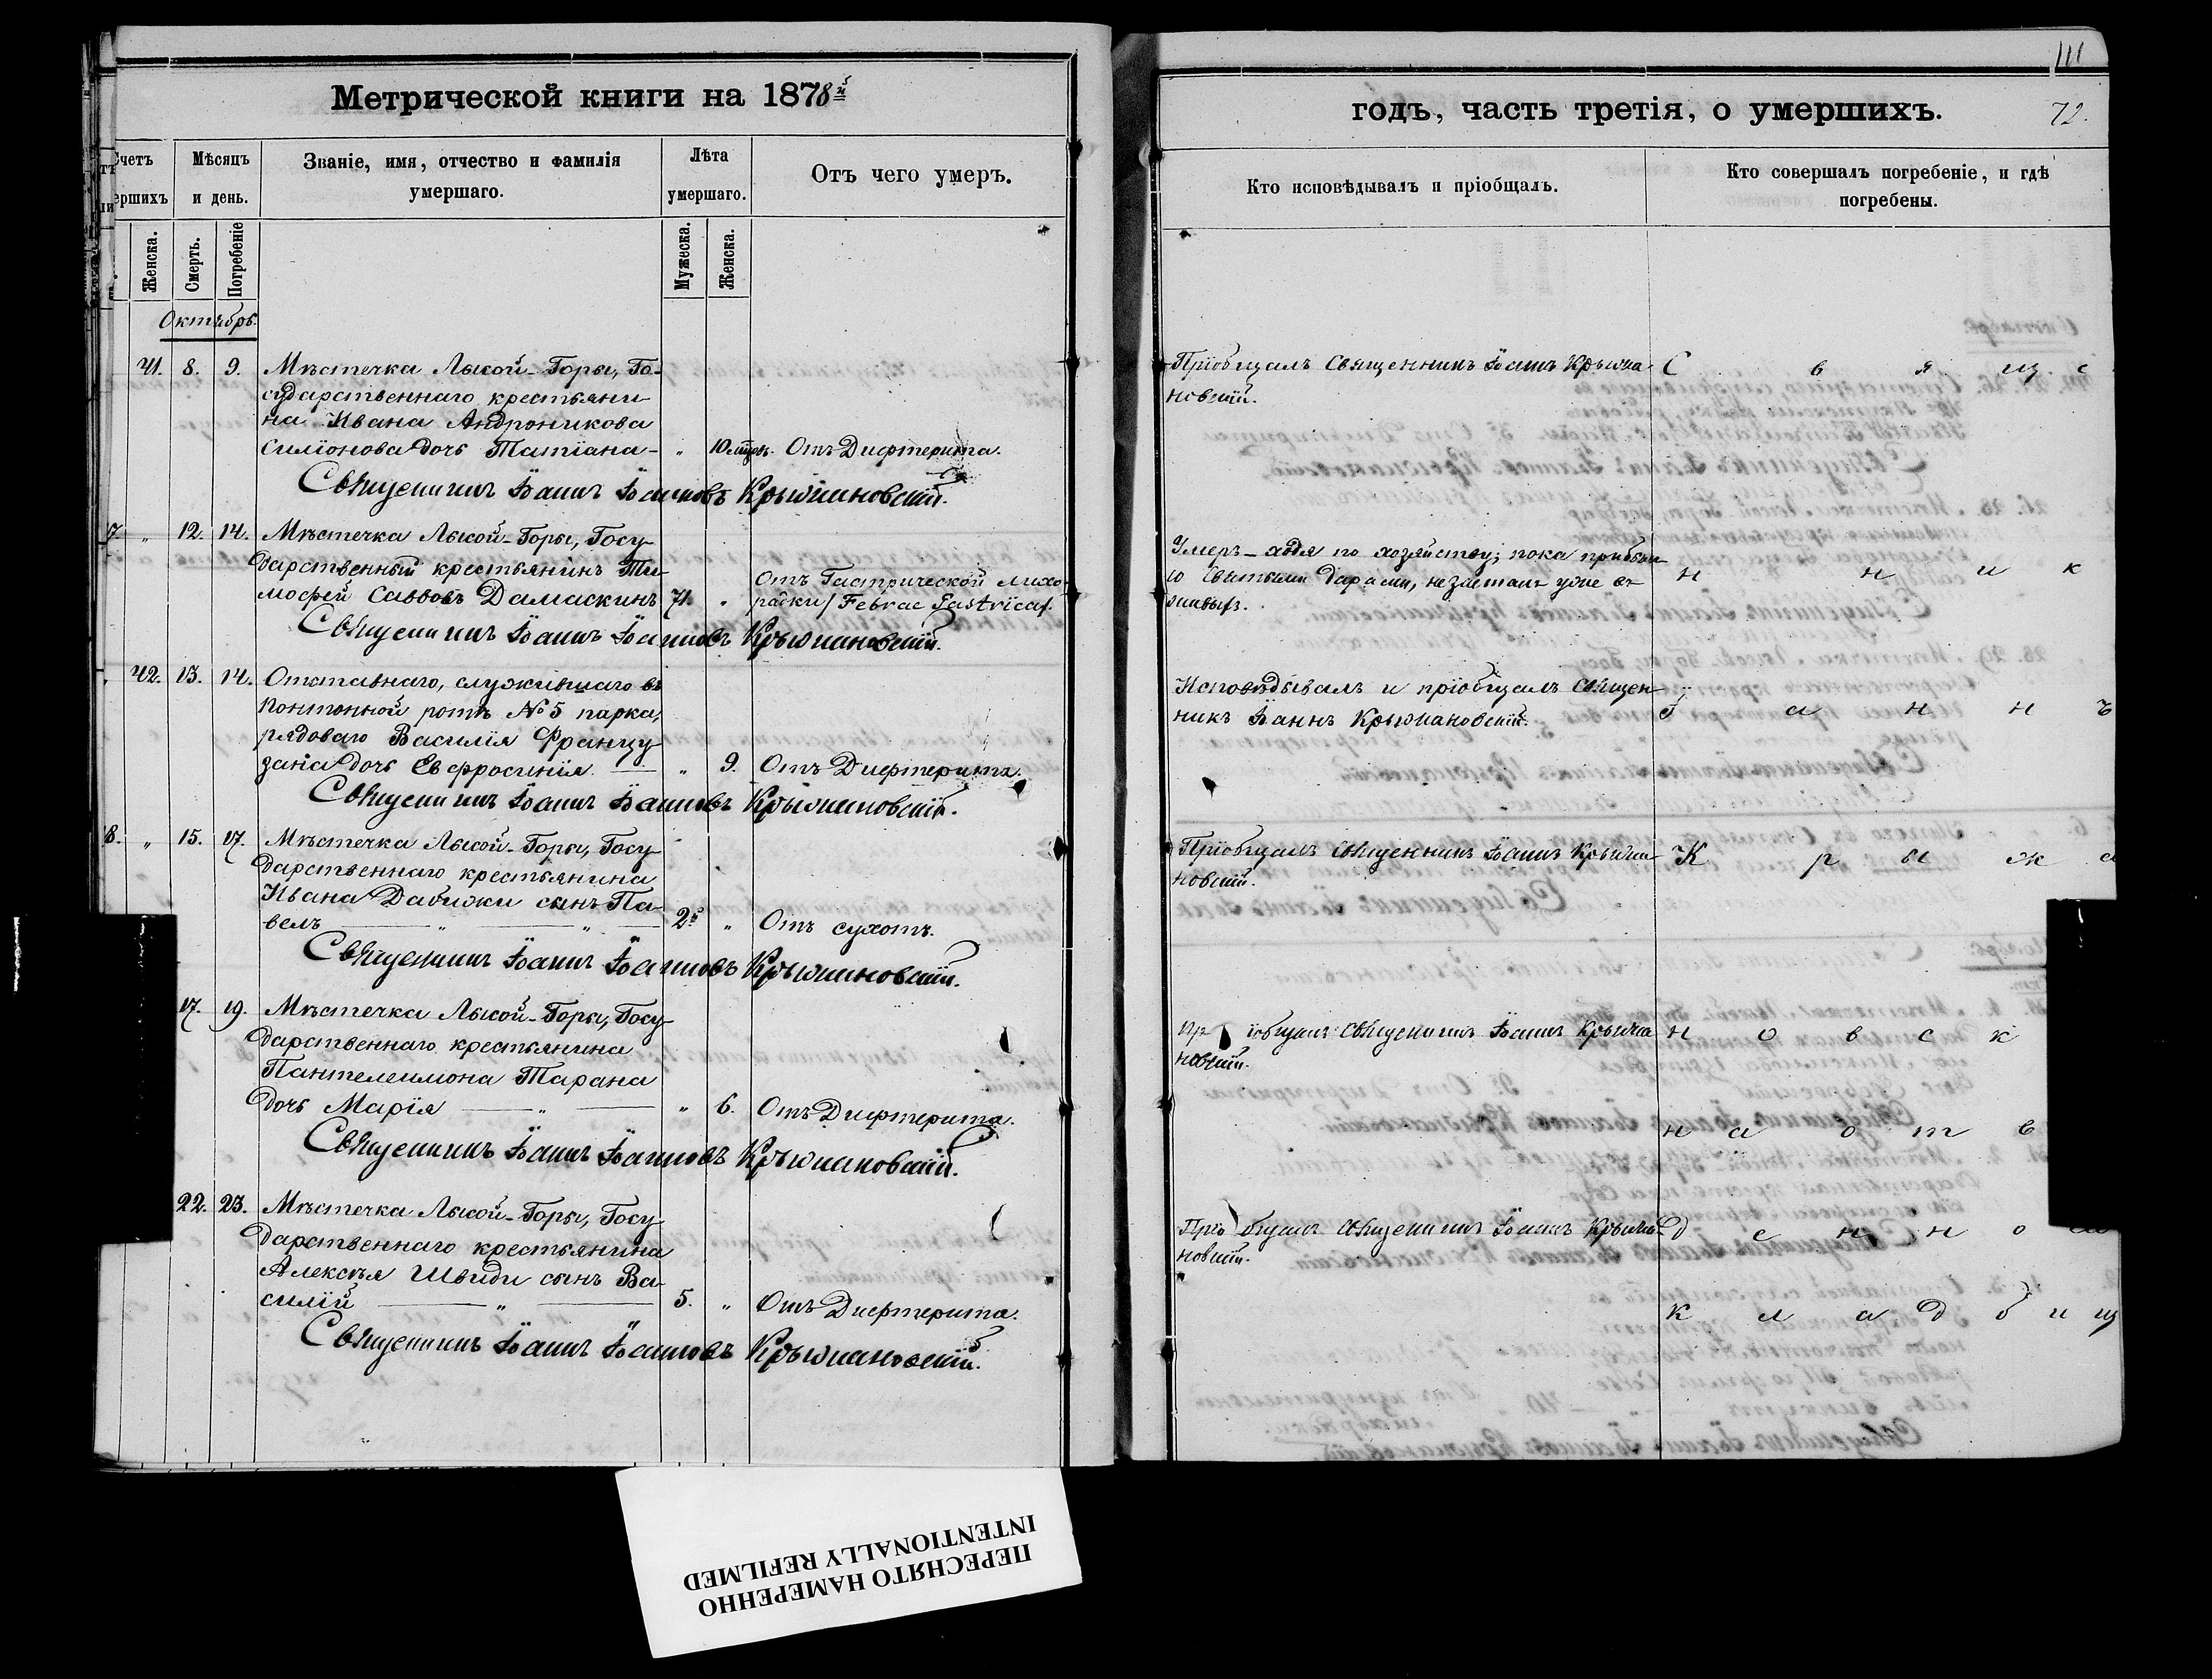 Метрической книги на 1878й
Счетъ
ершихъ
Мѣсяцъ
и день.
Званіе, имя, отчество и фамилія
умершаго.
Лѣта
умершаго.
Отъ чего умеръ.
Женска.
Смерть.
Погребеніе
Мужеска.
Женска.
Октябрь.
41. 8. 9. Мѣстечка Лысой-Горы, Го-
сударственнаго крестьяни-
на Ивана Андроникова
Симіонова дочь Татіана - „ 10 Отъ Дифтерита.
Священникъ Іоаннъ Іоанновъ Крыжановскій.
7. „ 12. 14. Мѣстечка Лысой-Горы, Госу-
дарственный крестьянинъ Ти-
мофей Саввовъ Дамаскинъ 71. „ Отъ Гастрической лихо-
радки / Febrae Gastrica/.
Священникъ Іоаннъ Іоанновъ Крыжановскій.
42. 13. 14. Отставнаго, служившаго въ
понтонной ротѣ № 5 парка,
рядоваго Василія Францу-
зана дочь Евфросинія. — „ 9. Отъ Дифтерита.
Священникъ Іоаннъ Іоанновъ Крыжановскій.
8. „ 15. 17. Мѣстечка Лысой-Горы, Госу-
дарственнаго крестьянина
Ивана Дабижи сынъ Па-
велъ — „ — „ — 2й „ Отъ сухотъ.
Священникъ Іоаннъ Іоанновъ Крыжановскій.
17. 19. Мѣстечка Лысой-Горы, Госу-
дарственнаго крестьянина
Пантелеимона Тарана
дочь Марія — „ — „ 6. Отъ Дифтерита.
Священникъ Іоаннъ Іоанновъ Крыжановскій.
22. 23. Мѣстечка Лысой-Горы, Госу-
дарственнаго крестьянина
Алексѣя Швиди сынъ Ва-
силій — „ — 5. „ Отъ Дифтерита.
Священникъ Іоаннъ Іоанновъ Крыжановскій.
111
годъ, часть третія, о умершихъ. 72.
Кто исповѣдывалъ и пріобщалъ.
Кто совершалъ погребеніе, и гдѣ
погребены.
Пріобщалъ Священникъ Іоаннъ Крыжа- С в я щ е
новскій.
Умеръ - ходя по хозяйству; пока прибылъ
со Святыми Дарами, не засталъ уже въ н н и к
живыхъ.
Исповѣдывалъ и пріобщалъ Священ-
никъ Іоаннъ Крыжановскій. І о а н н ъ
Пріобщалъ Священникъ Іоаннъ Крыжа- К р ы ж а
новскій.
Пріобщалъ Священникъ Іоаннъ Крыжа- н о в с к
новскій.
н а о т в
Пріобщалъ Священникъ Іоаннъ Крыжа- д е н н о м
новскій.
к л а д б и щ
ПЕРЕСНЯТО НАМЕРЕННО
INTENTIONALLY REFILMED